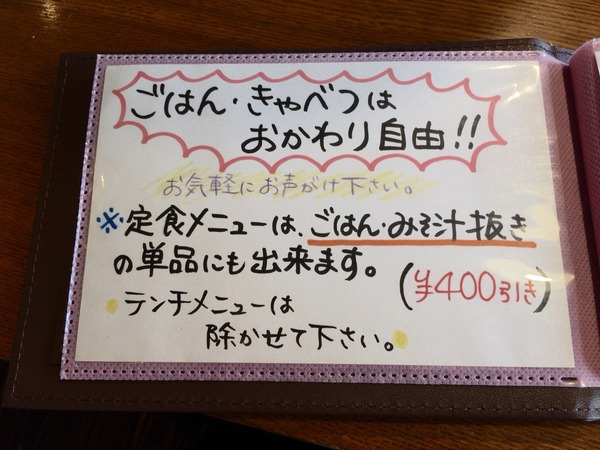 ごはん・きゃべつは
おかわり自由!!
お気軽にお声がけ下さい。
※定食メニューは、ごはん・みそ汁抜き
の単品にも出来ます。
(¥400引き)
テンチメニューは
除かせて下さい。